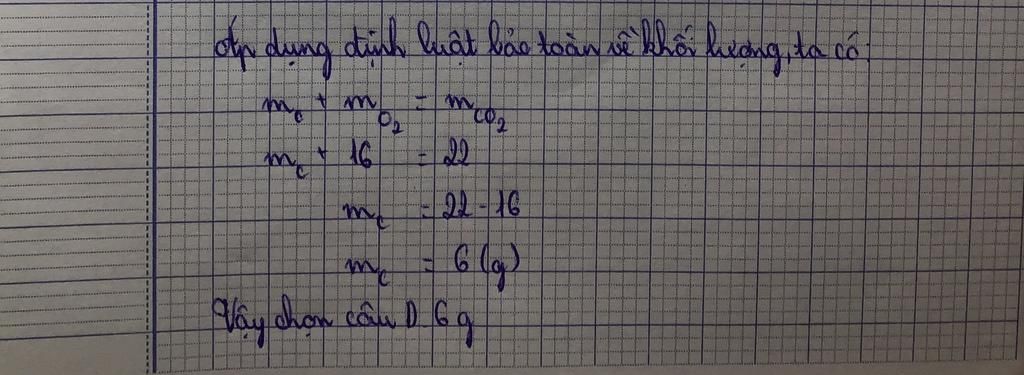 Áp dụng định luật bảo toàn về khối lượng, ta có
m_c + m_O₂ = m_CO₂
m_c + 16 = 22
m_c = 22 - 16
m_c = 6 (g)
Vậy chọn câu D. 6 g